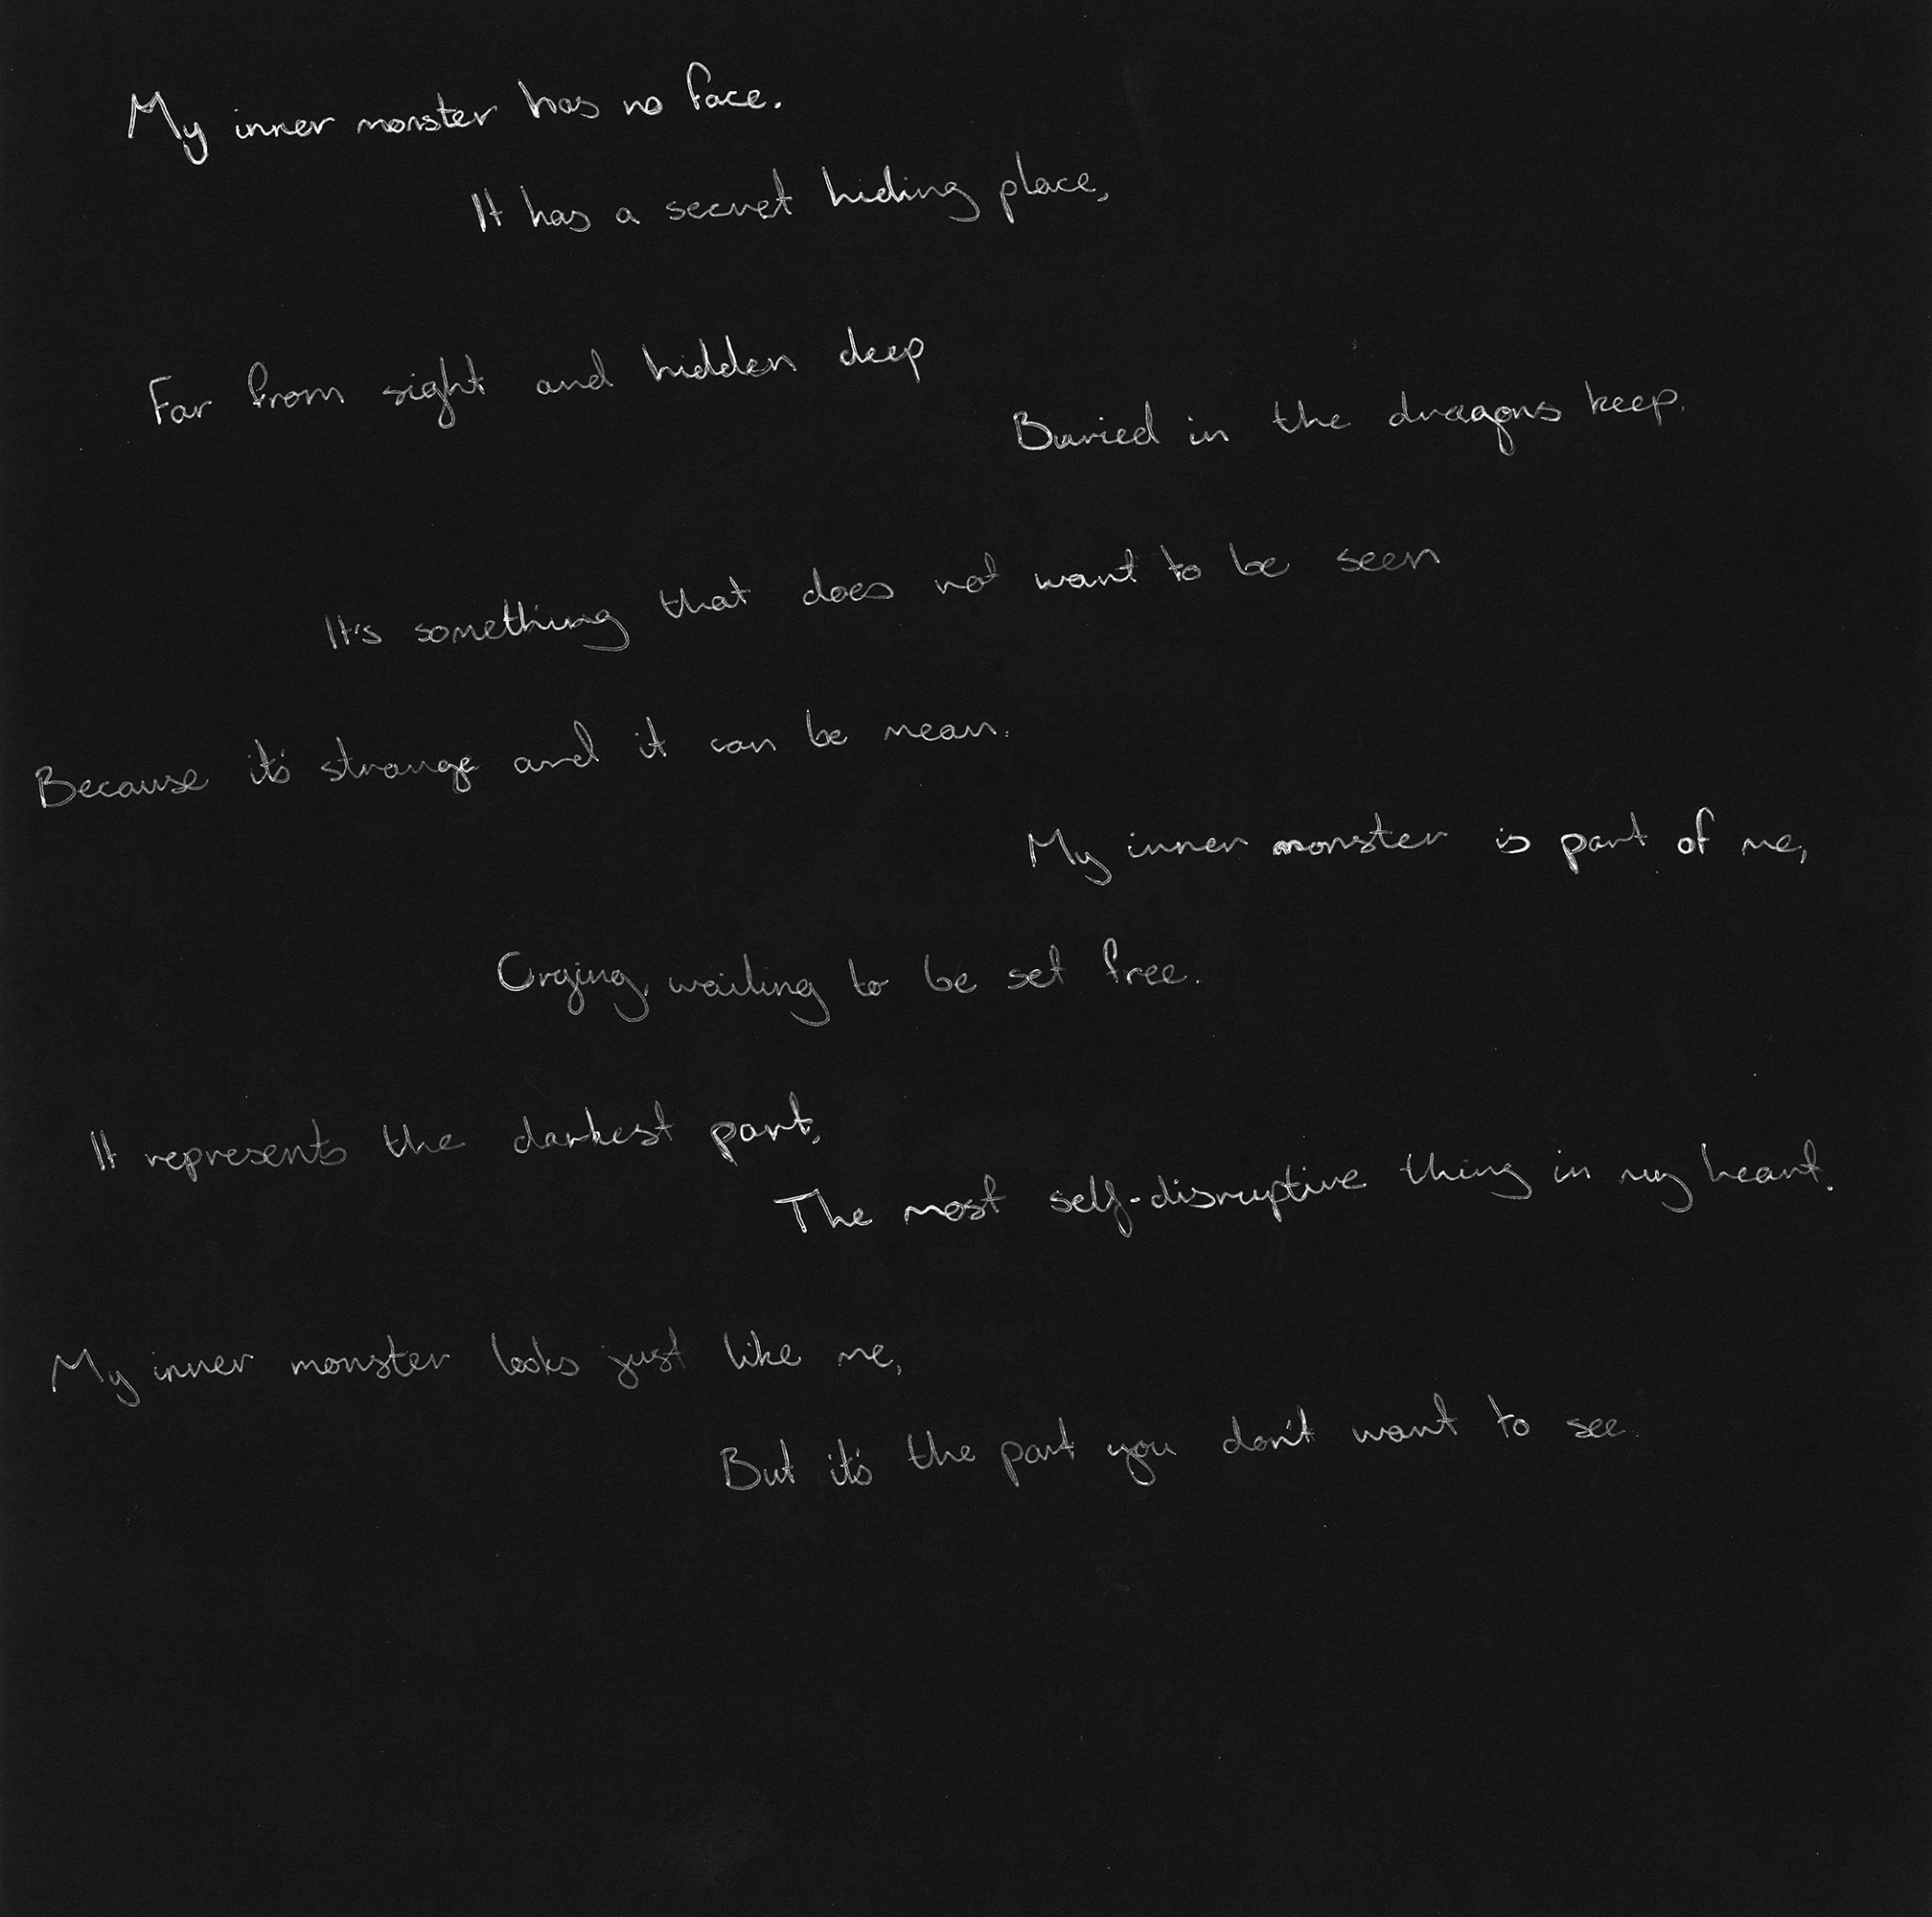 My inner monster has no face.
It has a secret hiding place,
Far from sight and hidden deep
Buried in the dragons keep.
It's something that does not want to be seen
Because it's strange and it can be mean.
My inner monster is part of me,
Crying, waiting to be set free.
It represents the darkest part,
The most self-disruptive thing in my heart.
My inner monster looks just like me,
But it's the part you don't want to see.